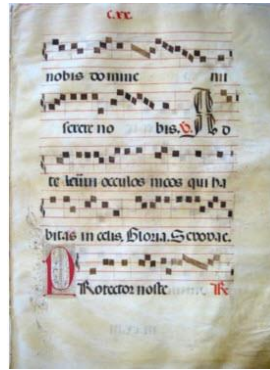 CXX.
nobis domine mi
serere no bis. V. A d
te leuaui occulos meos qui ha
bitas in celis. Gloria. Seuouae.
P Rotector noster